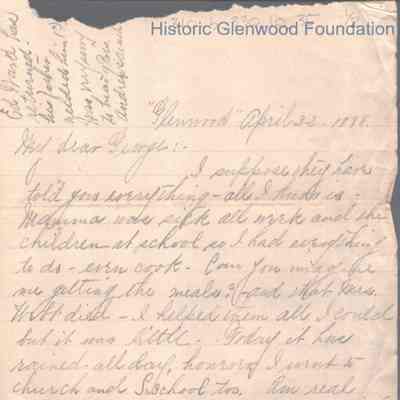 Historic Glenwood Foundation
Ed Ward has
returned.
his father
"Glenwood" April 22. 1888.
My dear George:-
I suppose they have
told you everything - all I think is -
Mamma was sick all week and the
children at school so I had everything
to do - even cook. Can you imagine
me getting the meals? and that Mrs.
Witt died - I helped them all I could
but it was little. Today it has
rained all day, however I went to
church and S. school too. Am real